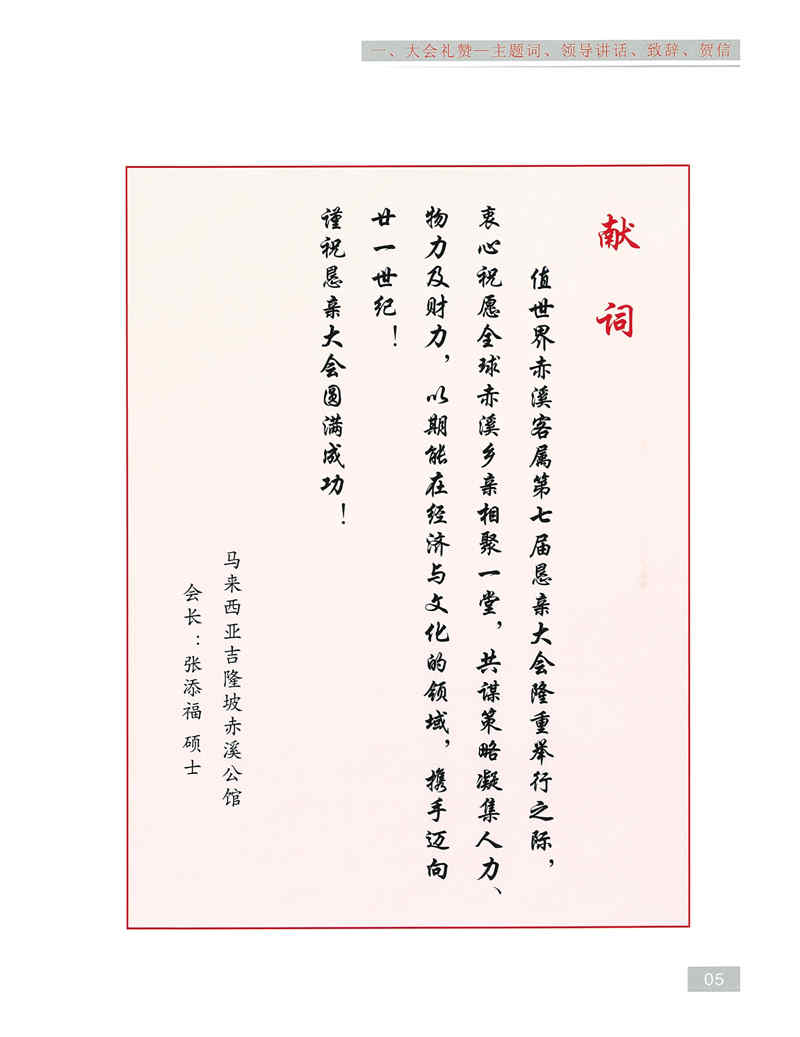 一、大会礼赞—主题词、领导讲话、致辞、贺信
献词
值世界赤溪客属第七届恳亲大会隆重举行之际，
衷心祝愿全球赤溪乡亲相聚一堂，共谋策略凝集人力、
物力及财力，以期能在经济与文化的领域，携手迈向
廿一世纪！
谨祝恳亲大会圆满成功！
马来西亚吉隆坡赤溪公馆
会长：张添福 硕士
05